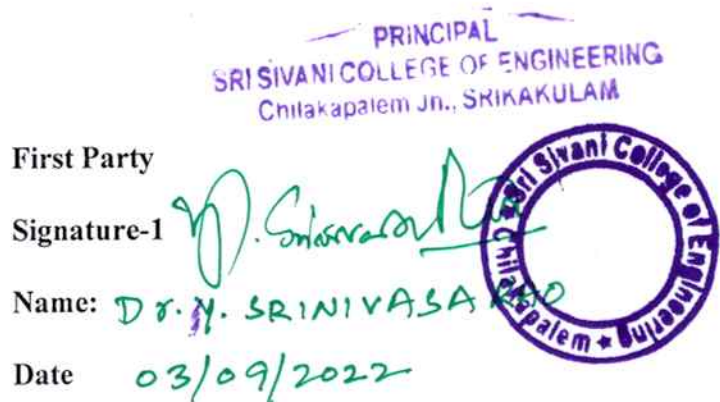 PRINCIPAL
SRI SIVANI COLLEGE OF ENGINEERING
Chilakapalem Jn., SRIKAKULAM
First Party
Signature-1 Y. Srinivasa Rao
Name: Dr. Y. SRINIVASA RAO
Date 03/09/2022
Sri Sivani College of Engineering ★ Chilakapalem ★